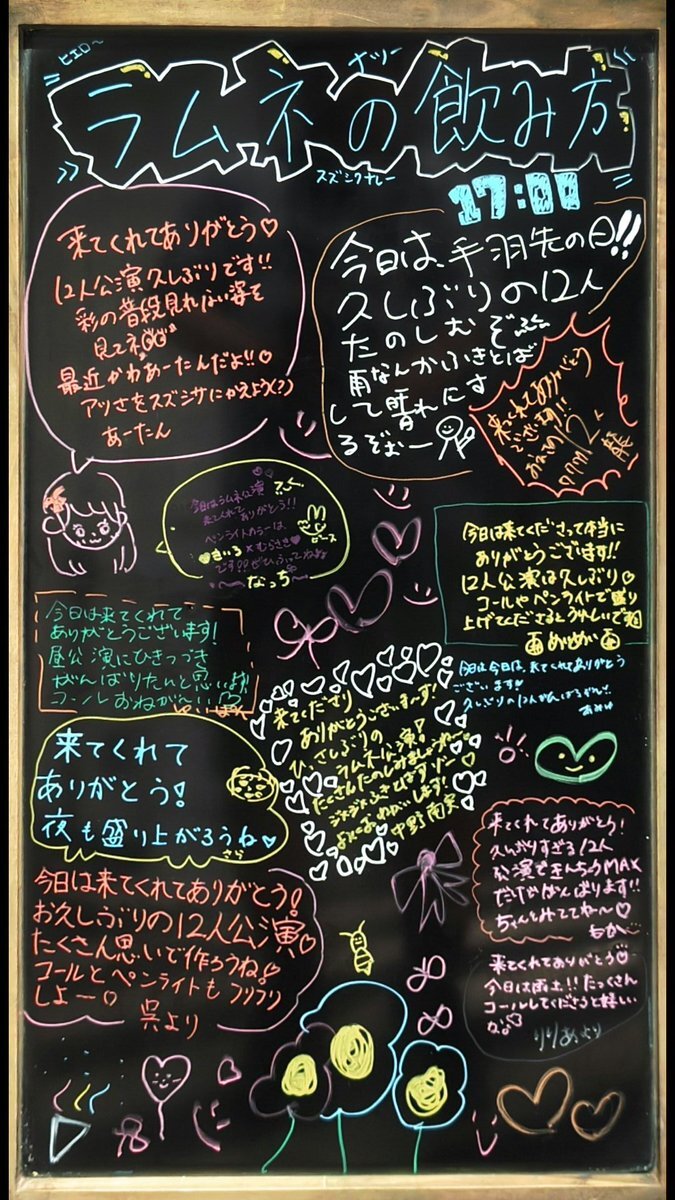 ヒエロ〜
ナツー
ラムネの飲み方
スズシクナレー
17:00
来てくれてありがとう♡
12人公演久しぶりです!!
彩の普段見れない姿を
見てネ
最近かわあーたんだよ!!♡
アツさをスズシサにかえよう(?)
あーたん
今日は、手羽先の日!!
久しぶりの12人
たのしむぞ
雨なんかふきとば
して晴れにす
るぞぉー
来てくれてありがとう
ございます!!
今日はラムネ公演
来てくれてありがとう!!
ペンライトカラーは
きいろ×むらさき
です!!ぜひふってねね
なっち
今日は来てくださって本当に
ありがとうございます!!
12人公演は久しぶり♡
コールやペンライトで盛り
上げてくださるとうれしいです
めいめい
今日は来てくれて
ありがとうございます!
昼公演にひきつづき
がんばりたいと思います!!
コールおねがいします
今日は今日は、来てくれてありがとう
ございます
久しぶりの12人がんばるぞ〜!
来てくださり
ありがとうございまーす!
ひさしぶりの
ラムネ公演!
たくさんたのしみましょーね〜
よろしくおねがいします!
来てくれて
ありがとう!
夜も盛り上がろうね♡
さら
来てくれてありがとう!
久しぶりすぎる12人
公演できんちょうMAX
だけどがんばります!!
ちゃんとみててね〜♡
もか
今日は来てくれてありがとう!
お久しぶりの12人公演♡
たくさん思いで作ろうね♡
コールとペンライトもフリフリ
しよー♡
呉より
来てくれてありがとう♡
今日は雨土!!たっくさん
コールしてくださると嬉しい
なな♡
りりあより